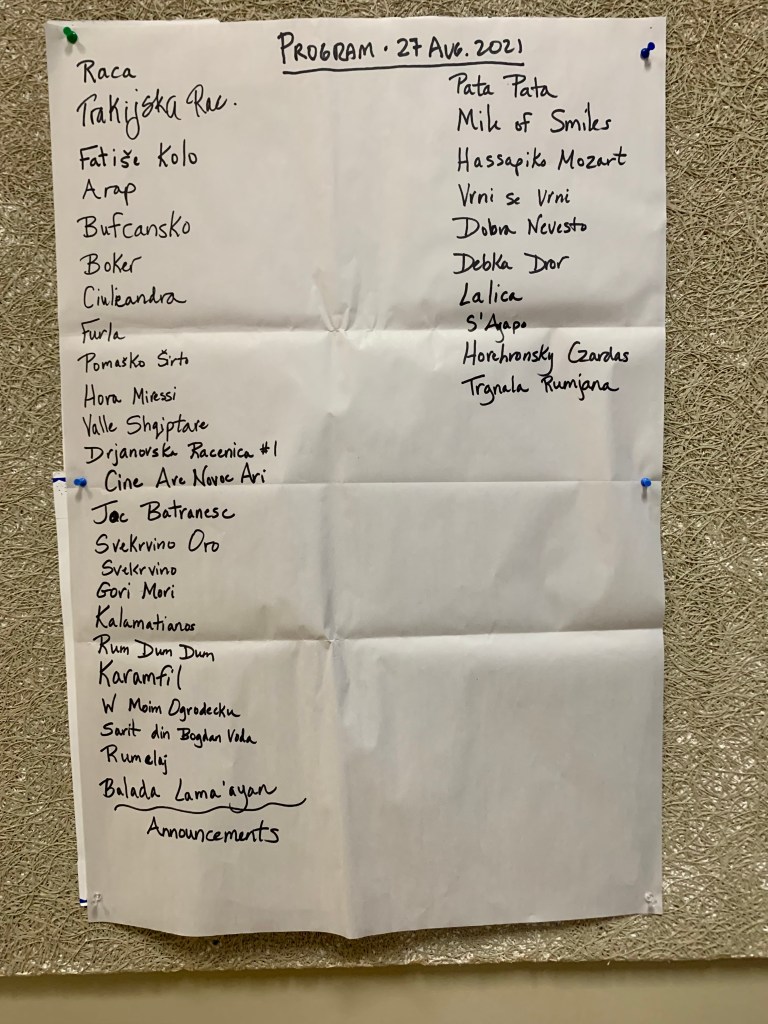 PROGRAM · 27 AUG. 2021
Raca
Trakijska Rac.
Fatiše Kolo
Arap
Bufcansko
Boker
Ciuleandra
Furla
Pomaško Širto
Hora Miresii
Valle Shqiptare
Drjanovska Racenica #1
Cine Are Noroc Ari
Joc Batranesc
Svekrvino Oro
Svekrvino
Gori Mori
Kalamatianos
Rum Dum Dum
Karamfil
W Moim Ogrodecku
Sarit din Bogdan Voda
Rumelaj
Balada Lama'ayan
Announcements
Pata Pata
Mile of Smiles
Hassapiko Mozart
Vrni se Vrni
Dobra Nevesto
Debka Dror
Lalica
S'Agapo
Horehronsky Czardas
Trgnala Rumjana